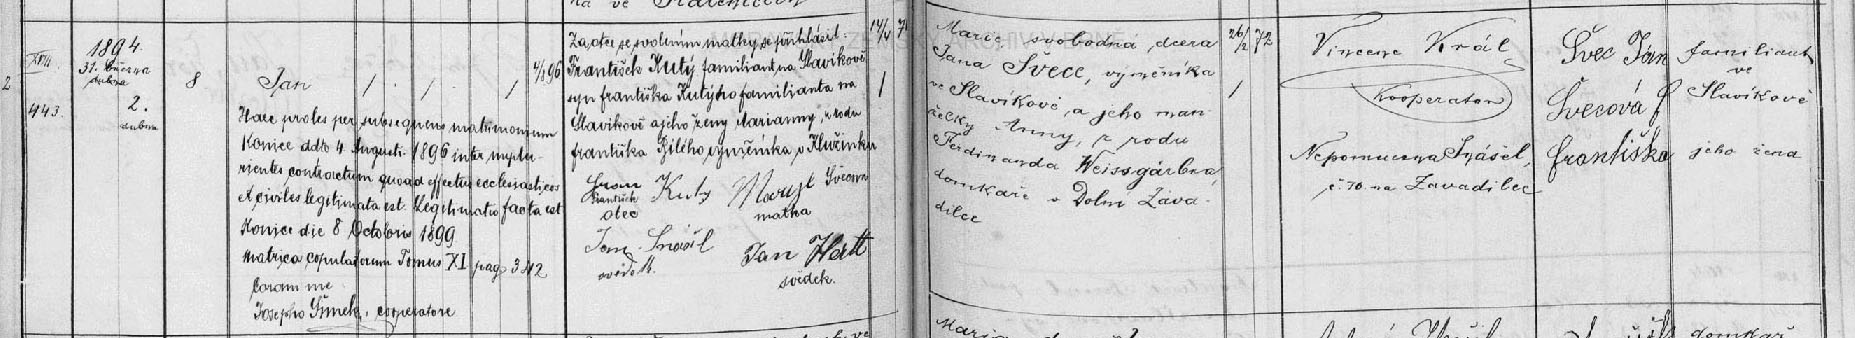 1894.
31. března
dubna
2.
dubna
2
443.
8
Jan
4/8 96
Haec proles per subsequens matrimonium
Konice ddto 4. Augusti 1896 inter nuptu-
rientes contractum quoad effectus ecclesiasticos
et civiles legitimata est. Legitimatio facta est
Konice die 8 Octobris 1899
Matrica copulatorum Tomus XI pag. 342
Coram me
Josepho Šimek, cooperatore
Za otce se svolením matky se přihlásil
František Kutý familiant na Slavíkově
syn františka Kutýho familianta na
Slavíkově a jeho ženy Marianny, z rodu
františka Bílého, výměnkáře v Klužínku
František Kutý
otec
Marye Švecova
matka
Jan Snášil
svědek
Jan Hatt
svědek.
14/4 74
1
Marie, svobodná, dcera
Jana Švece, výměníka
ve Slavíkově, a jeho man-
želky Anny, z rodu
Ferdinanda Weissgärbra,
domkaře v Dolní Záva-
dilce
26/2 72
1
Vincenc Král
Kooperator
Nepomucena Snášel,
č. 70 na Zavadilce
Švec Jan familiant
ve
Švecová Slavíkově
františka jeho žena